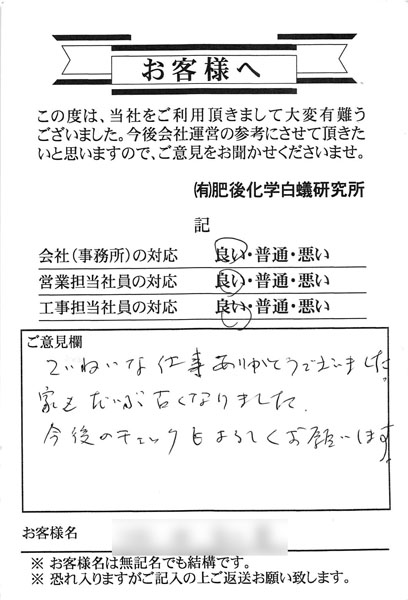 お客様へ
この度は、当社をご利用頂きまして大変有難う
ございました。今後会社運営の参考にさせて頂きた
いと思いますので、ご意見をお聞かせくださいませ。
㈲肥後化学白蟻研究所
記
会社(事務所)の対応 良い・普通・悪い
営業担当社員の対応 良い・普通・悪い
工事担当社員の対応 良い・普通・悪い
ご意見欄
ていねいな仕事ありがとうございました。
家もだいぶ古くなりました。
今後のチェックもよろしくお願いします。
お客様名
※ お客様名は無記名でも結構です。
※ 恐れ入りますがご記入の上ご返送お願い致します。